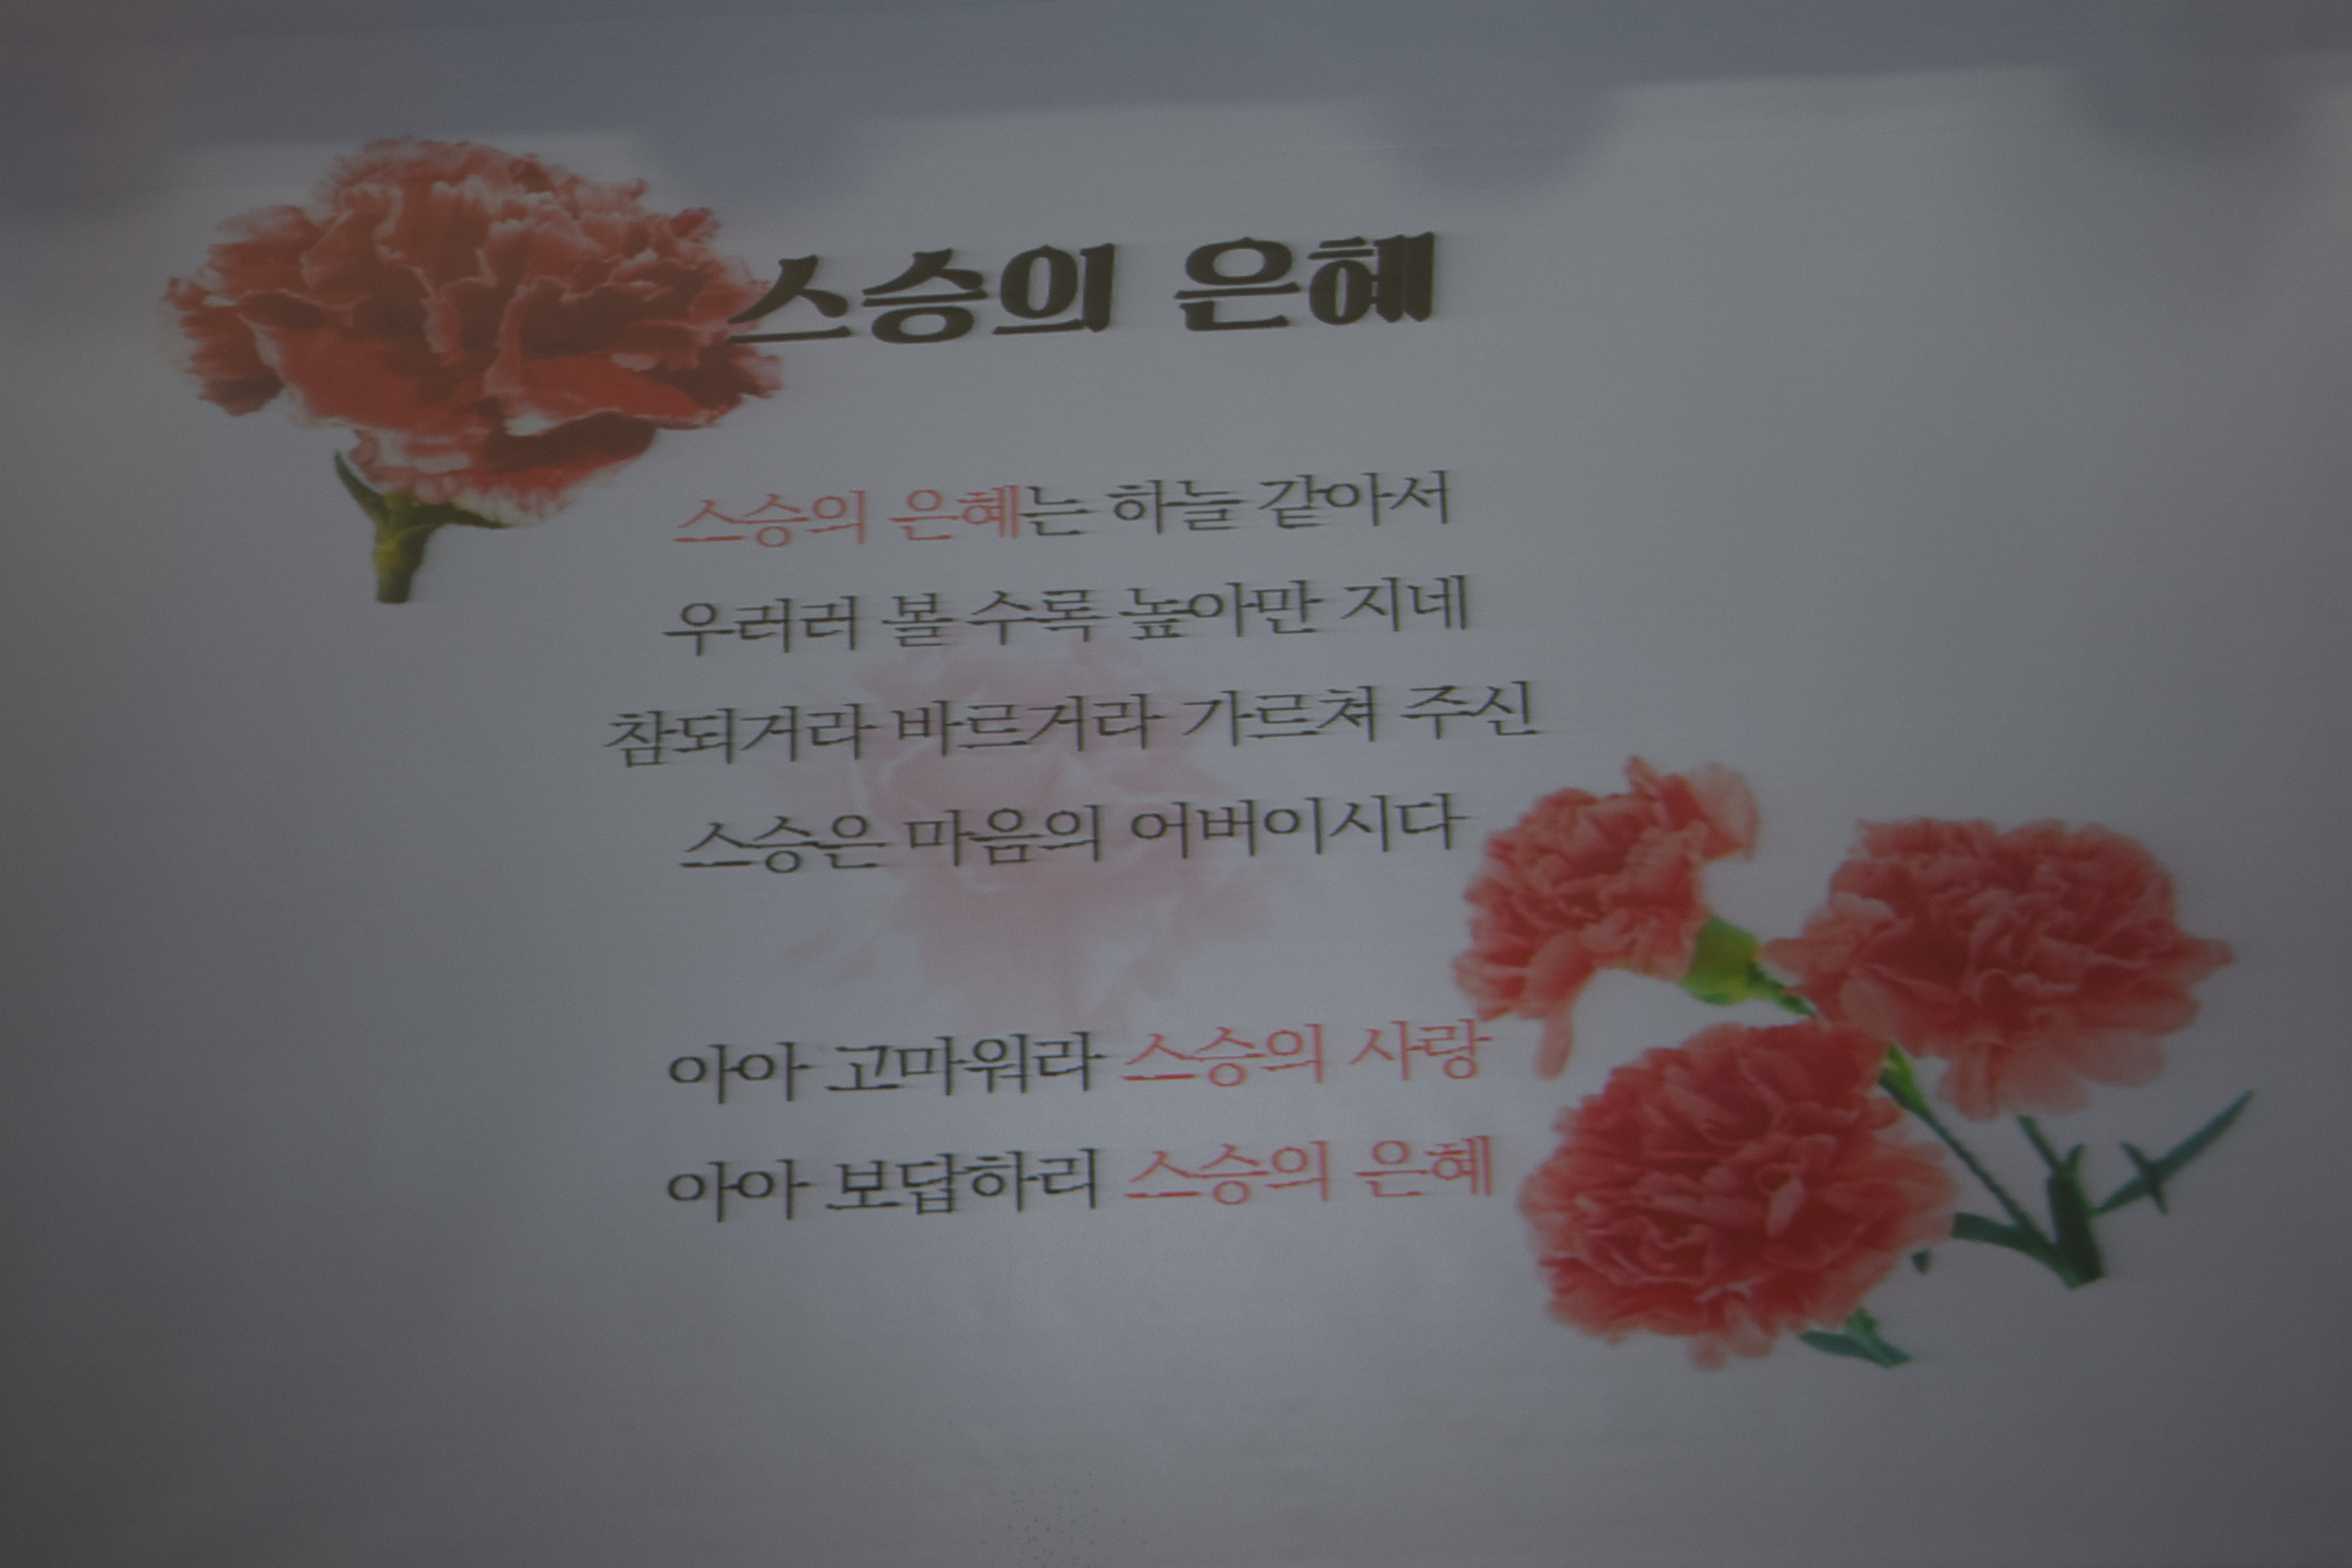 스승의 은혜
스승의 은혜는 하늘 같아서
우러러 볼 수록 높아만 지네
참되거라 바르거라 가르쳐 주신
스승은 마음의 어버이시다
아아 고마워라 스승의 사랑
아아 보답하리 스승의 은혜